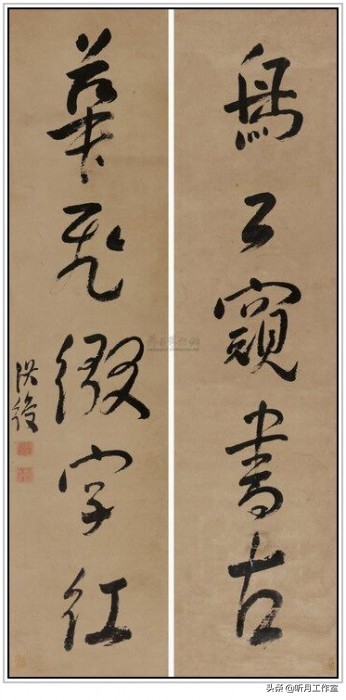 鳥下窺書古
華飛綴字紅
洪綬
头条 @听月工作室